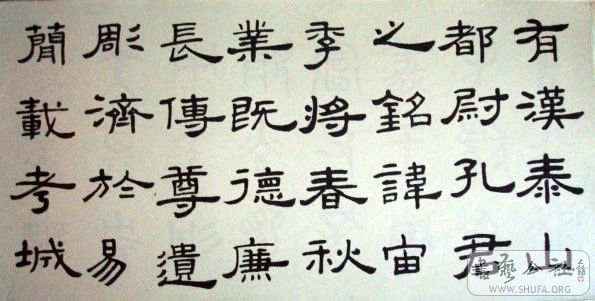 有漢泰山
都尉孔君
之銘諱宙
季將春秋
業既德廉
長傳尊遺
彫濟於易
簡載考城
書藝公社
WWW.SHUFA.ORG